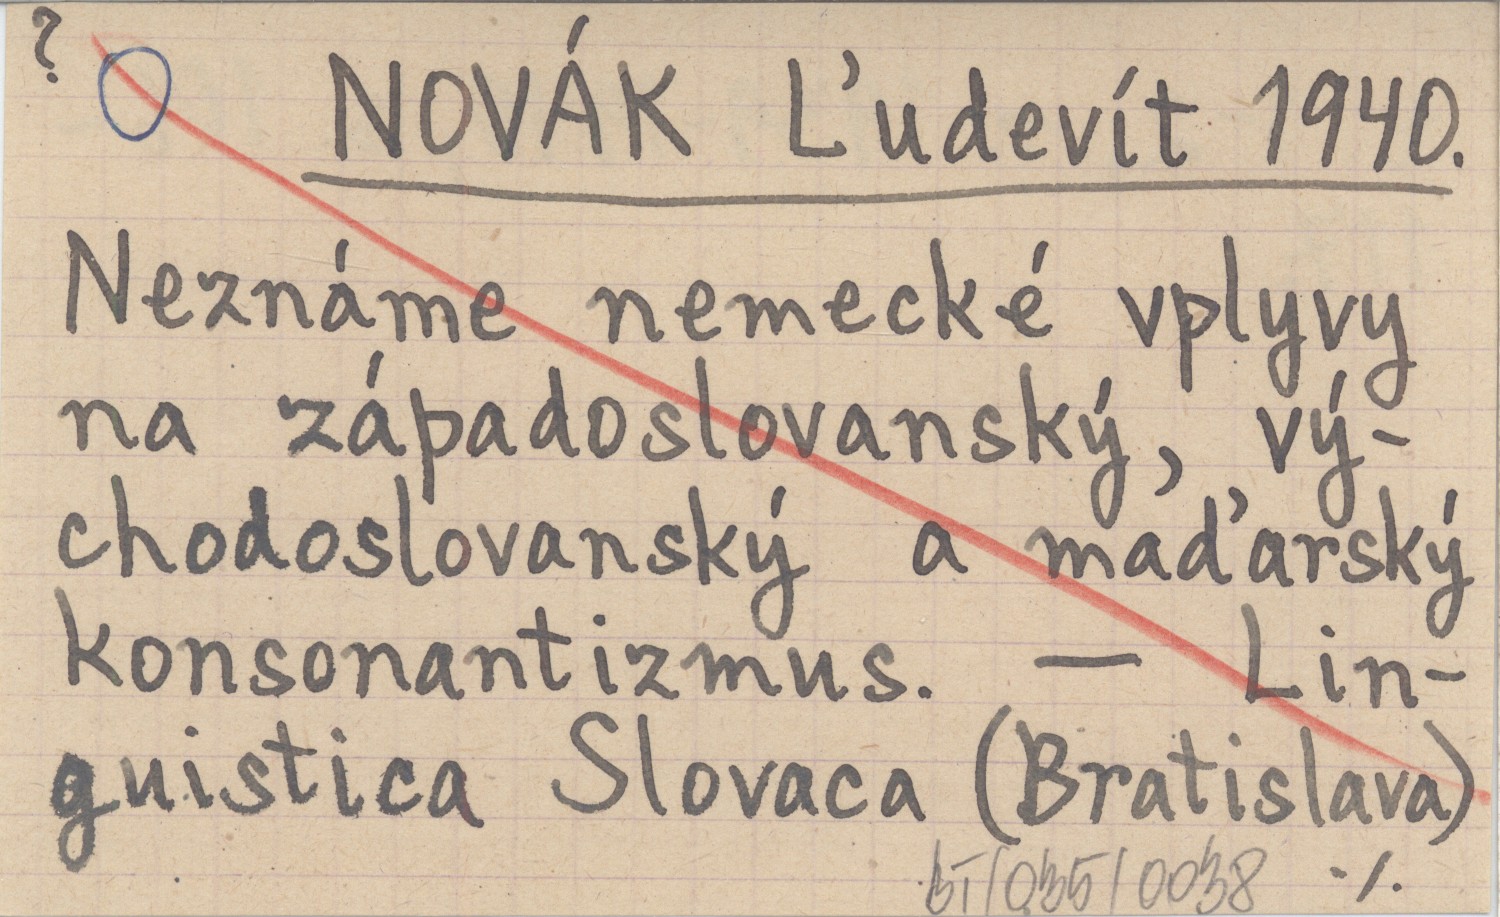 ?
NOVÁK Ľudevít 1940.
Neznáme nemecké vplyvy
na západoslovanský, vý-
chodoslovanský a maďarský
konsonantizmus. — Lin-
guistica Slovaca (Bratislava)
/035/0038 ./.